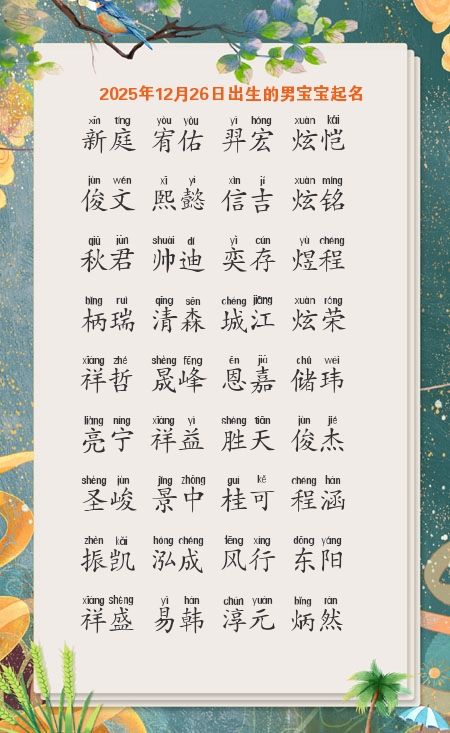 2025年12月26日出生的男宝宝起名
xīn tíng yòu yòu yì hóng xuàn kǎi
新庭 宥佑 羿宏 炫恺
jùn wén xī yì xìn jí xuàn míng
俊文 熙懿 信吉 炫铭
qiū jūn shuài dí yì cún yù chéng
秋君 帅迪 奕存 煜程
bǐng ruì qīng sēn chéng jiāng xuàn róng
柄瑞 清森 城江 炫荣
xiáng zhé shèng fēng ēn jiā chǔ wěi
祥哲 晟峰 恩嘉 储玮
liàng níng xiáng yì shèng tiān jùn jié
亮宁 祥益 胜天 俊杰
shèng jùn jǐng zhōng guì kě chéng hán
圣峻 景中 桂可 程涵
zhèn kǎi hóng chéng fēng xíng dōng yáng
振凯 泓成 风行 东阳
xiáng shèng yì hán chún yuán bǐng rán
祥盛 易韩 淳元 炳然